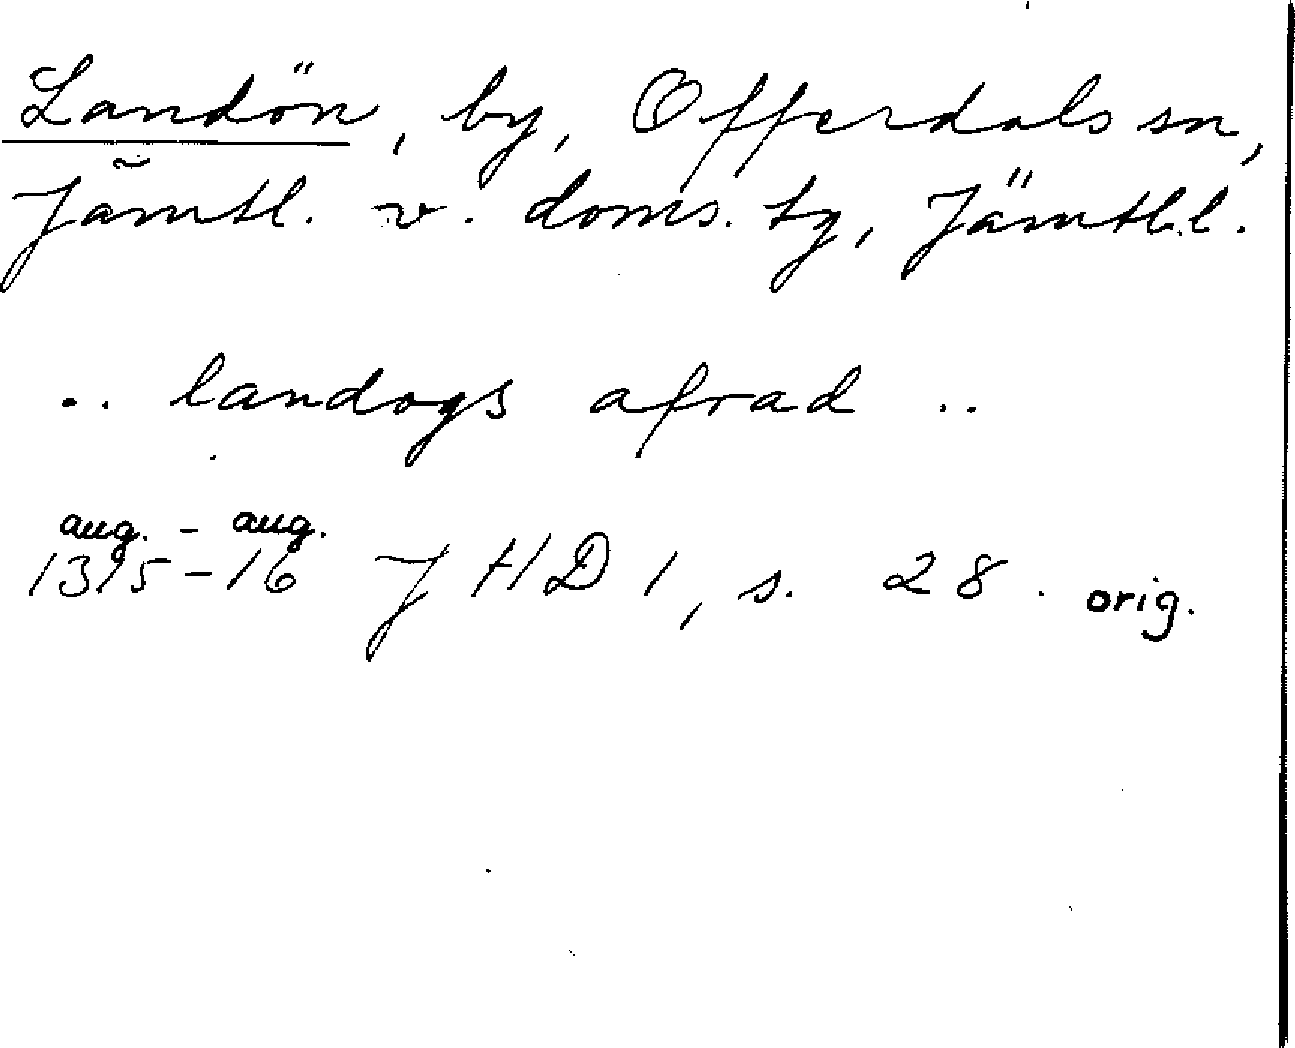 Landön, by, Offerdals sn,
Jämtl. v. doms. tg, Jämtl.l.
.. landogs afrad ..
aug. - aug.
1315-16 JHD 1, s. 28. orig.